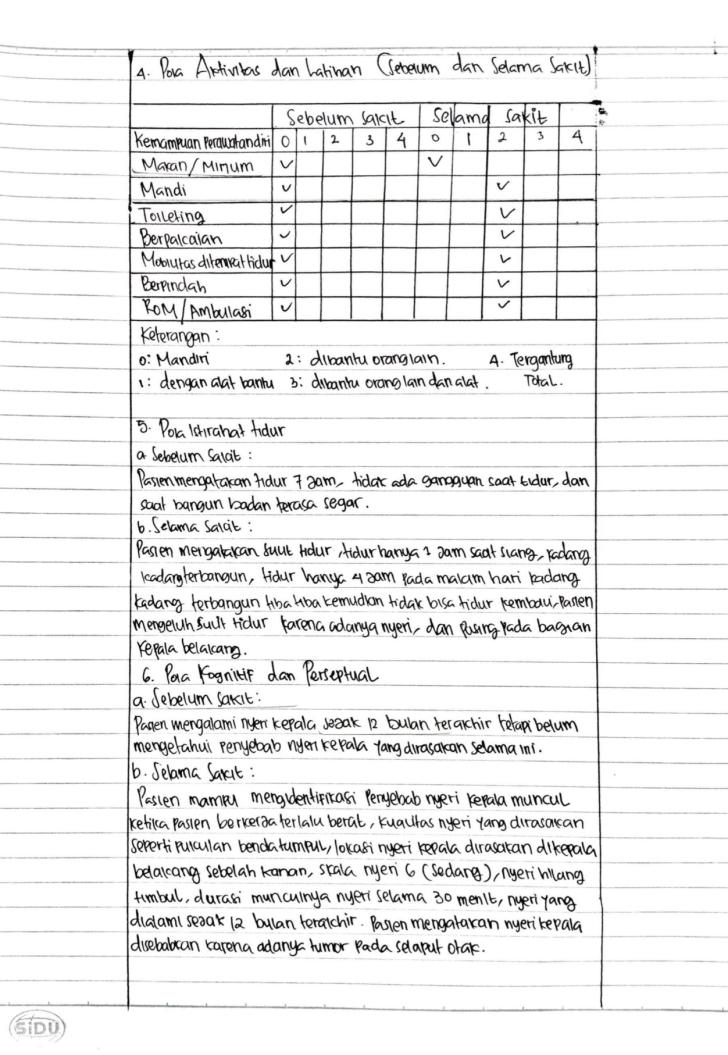 4. Pola Aktivitas dan Latihan (Sebelum dan Selama Sakit)
Sebelum sakit Selama sakit
Kemampuan Perawatandiri 0 1 2 3 4 0 1 2 3 4
Makan/Minum ✓ ✓
Mandi ✓ ✓
Toileting ✓ ✓
Berpakaian ✓ ✓
Mobilitas ditempat tidur ✓ ✓
Berpindah ✓ ✓
ROM/Ambulasi ✓ ✓
Keterangan :
0: Mandiri 2: dibantu orang lain. 4. Tergantung
1: dengan alat bantu 3: dibantu orang lain dan alat. Total.
5. Pola Istirahat tidur
a. Sebelum Sakit :
Pasien mengatakan tidur 7 jam, tidak ada gangguan saat tidur, dan
saat bangun badan terasa segar.
b. Selama Sakit :
Pasien mengatakan sulit tidur, tidur hanya 1 jam saat siang, kadang
kadang terbangun, tidur hanya 4 jam pada malam hari kadang
kadang terbangun tiba tiba kemudian tidak bisa tidur kembali, Pasien
mengeluh sulit tidur karena adanya nyeri, dan pusing pada bagian
kepala belakang.
6. Pola Kognitif dan Perseptual
a. Sebelum sakit :
Pasien mengalami nyeri kepala sejak 12 bulan terakhir tetapi belum
mengetahui penyebab nyeri kepala yang dirasakan selama ini.
b. Selama Sakit :
Pasien mampu mengidentifikasi penyebab nyeri kepala muncul
ketika pasien berkerja terlalu berat, kualitas nyeri yang dirasakan
seperti pukulan benda tumpul, lokasi nyeri kepala dirasakan dikepala
belakang sebelah kanan, skala nyeri 6 (Sedang), nyeri hilang
timbul, durasi munculnya nyeri selama 30 menit, nyeri yang
dialami sejak 12 bulan terakhir. Pasien mengatakan nyeri kepala
disebabkan karena adanya tumor pada selaput otak.
SiDU